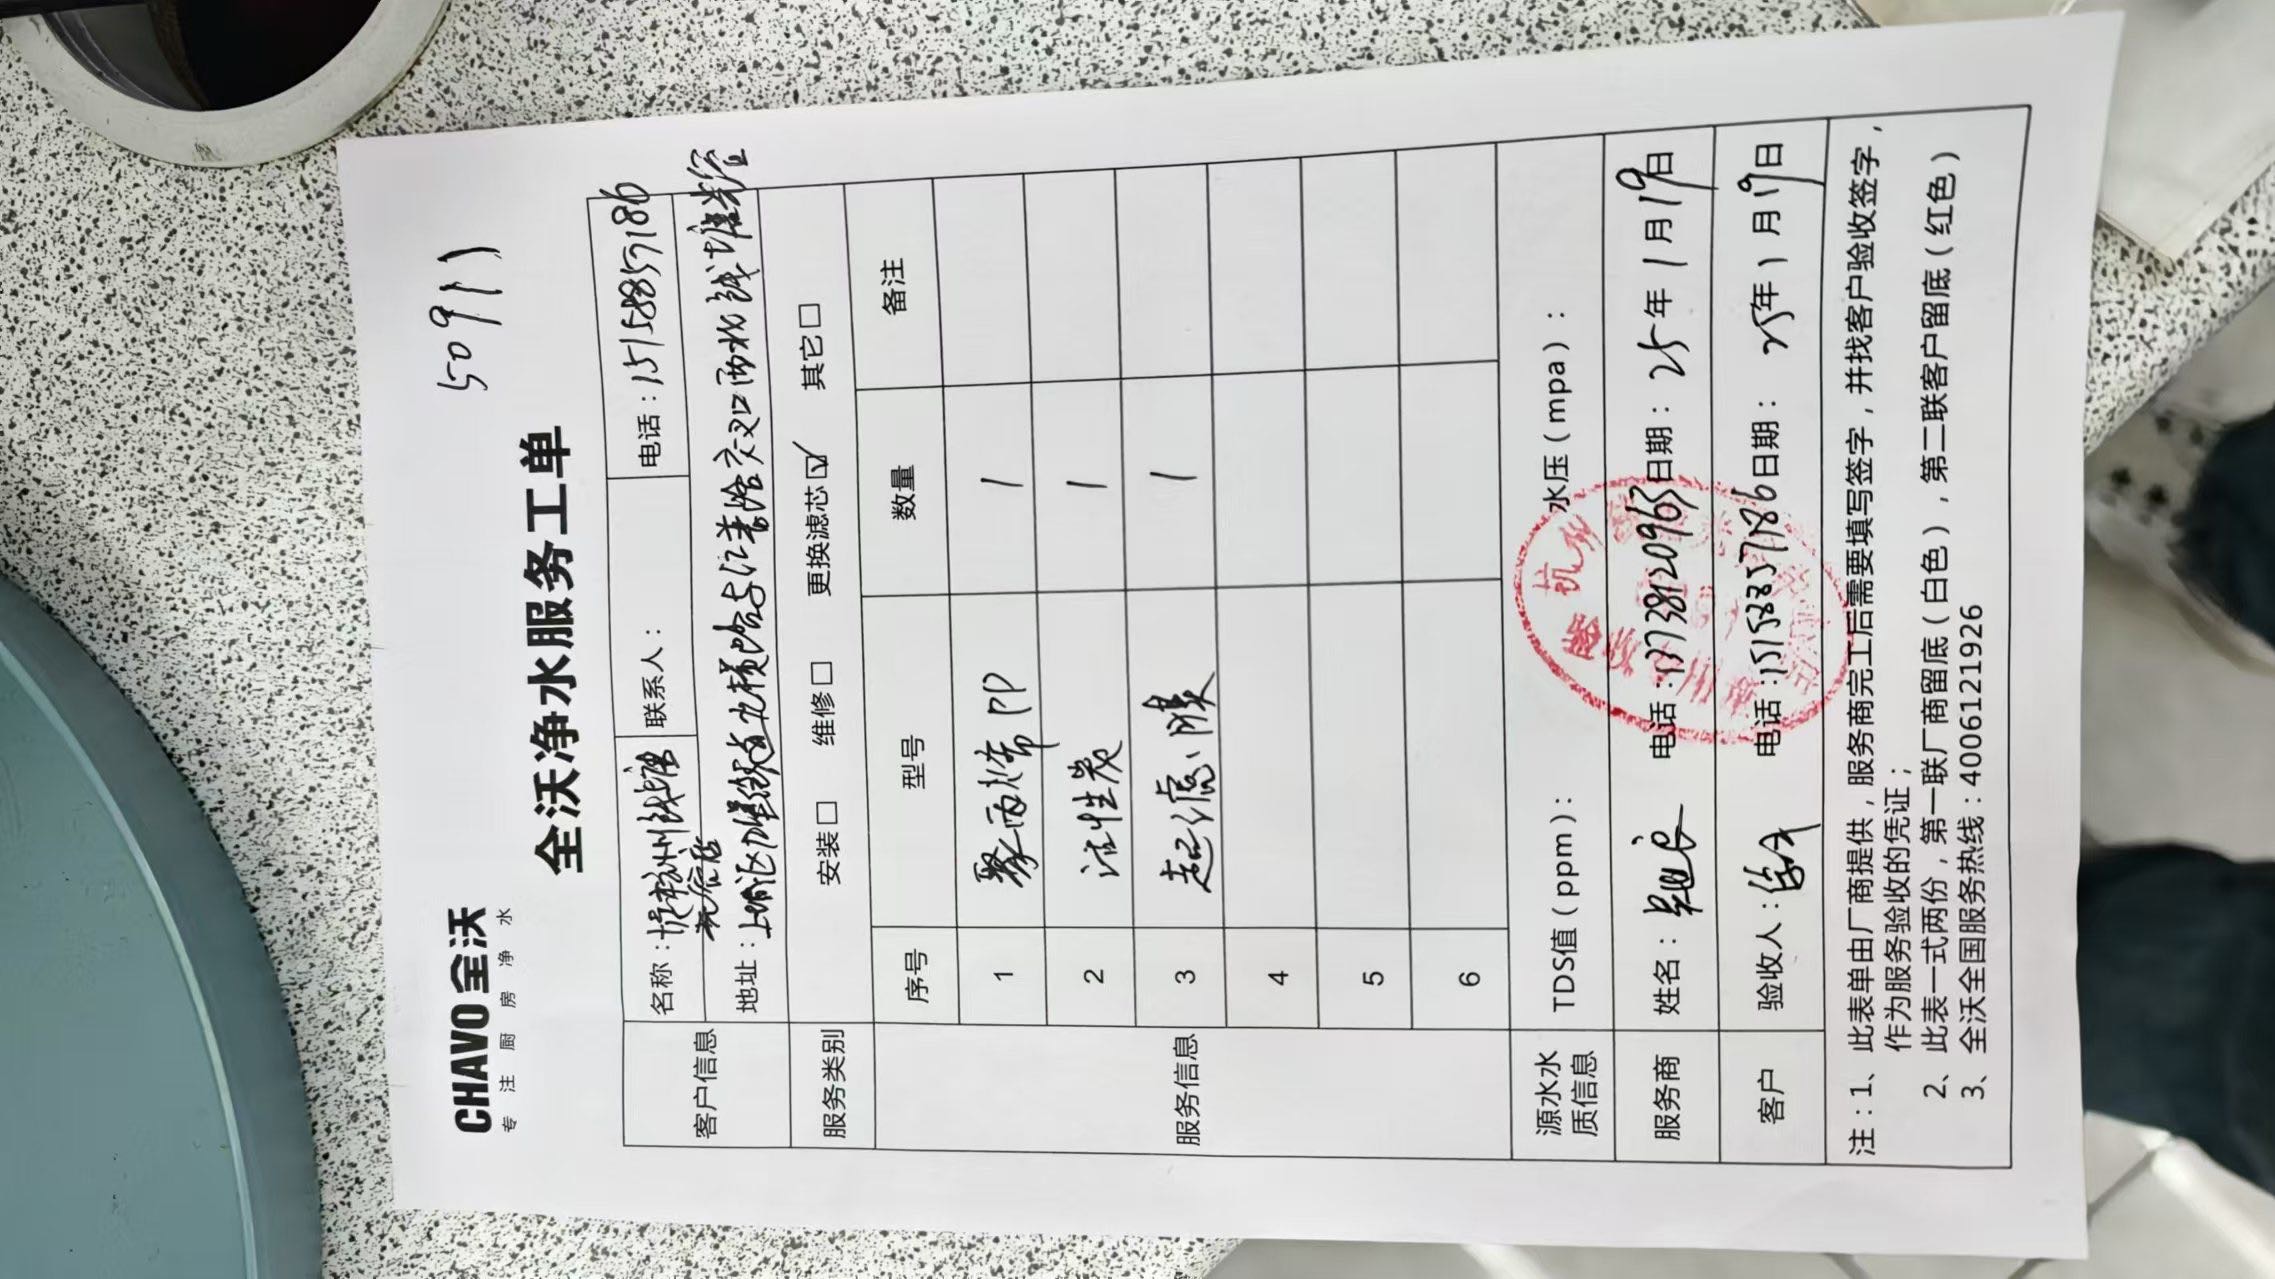 50911
CHAVO全沃
专注厨房净水
全沃净水服务工单
客户信息 名称：杭州钱塘 联系人： 电话：15158857186
天谷店
地址：上城区 与江 路交叉口西北钱塘
服务类别 安装□ 维修□ 更换滤芯☑ 其它□
服务信息 序号 型号 数量 备注
1 聚丙烯PP 1
2 活性炭 1
3 超滤膜 1
4
5
6
源水水质信息 TDS值（ppm）： 水压（mpa）：
服务商 姓名： 电话：13738120963 日期：25年1月19日
客户 验收人： 电话：15158857186 日期：25年1月19日
注：1、此表单由厂商提供，服务商完工后需要填写签字，并找客户验收签字，
作为服务验收的凭证；
2、此表一式两份，第一联厂商留底（白色），第二联客户留底（红色）
3、全沃全国服务热线：4006121926